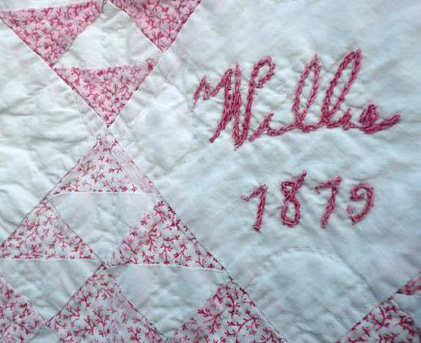 Nellie
1879